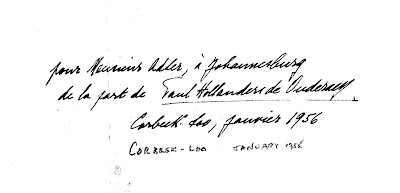 pour Monsieur Adler, à Johannesburg
de la part de Paul Hollanders de Ouderaen
Corbeek-Loo, janvier 1956
CORBEEK-LOO JANUARY 1956